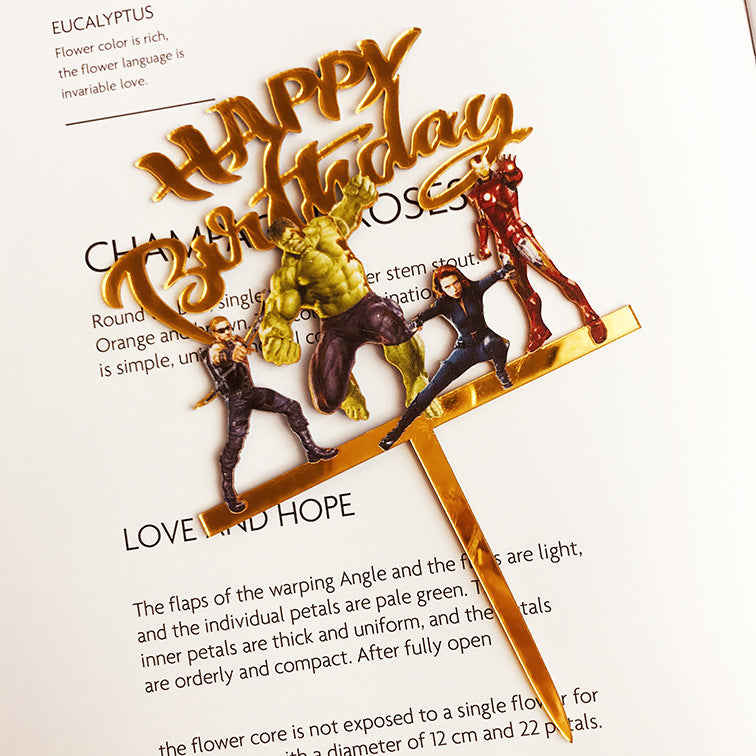 EUCALYPTUS
Flower color is rich,
the flower language is
invariable love.
HAPPY
Birthday
ROSES
Round single er stem stout.
Orange and
is simple,
LOVE AND HOPE
The flaps of the warping Angle and the are light,
and the individual petals are pale green.
inner petals are thick and uniform, and the
are orderly and compact. After fully open
the flower core is not exposed to a single flower for
with a diameter of 12 cm and 22 petals.